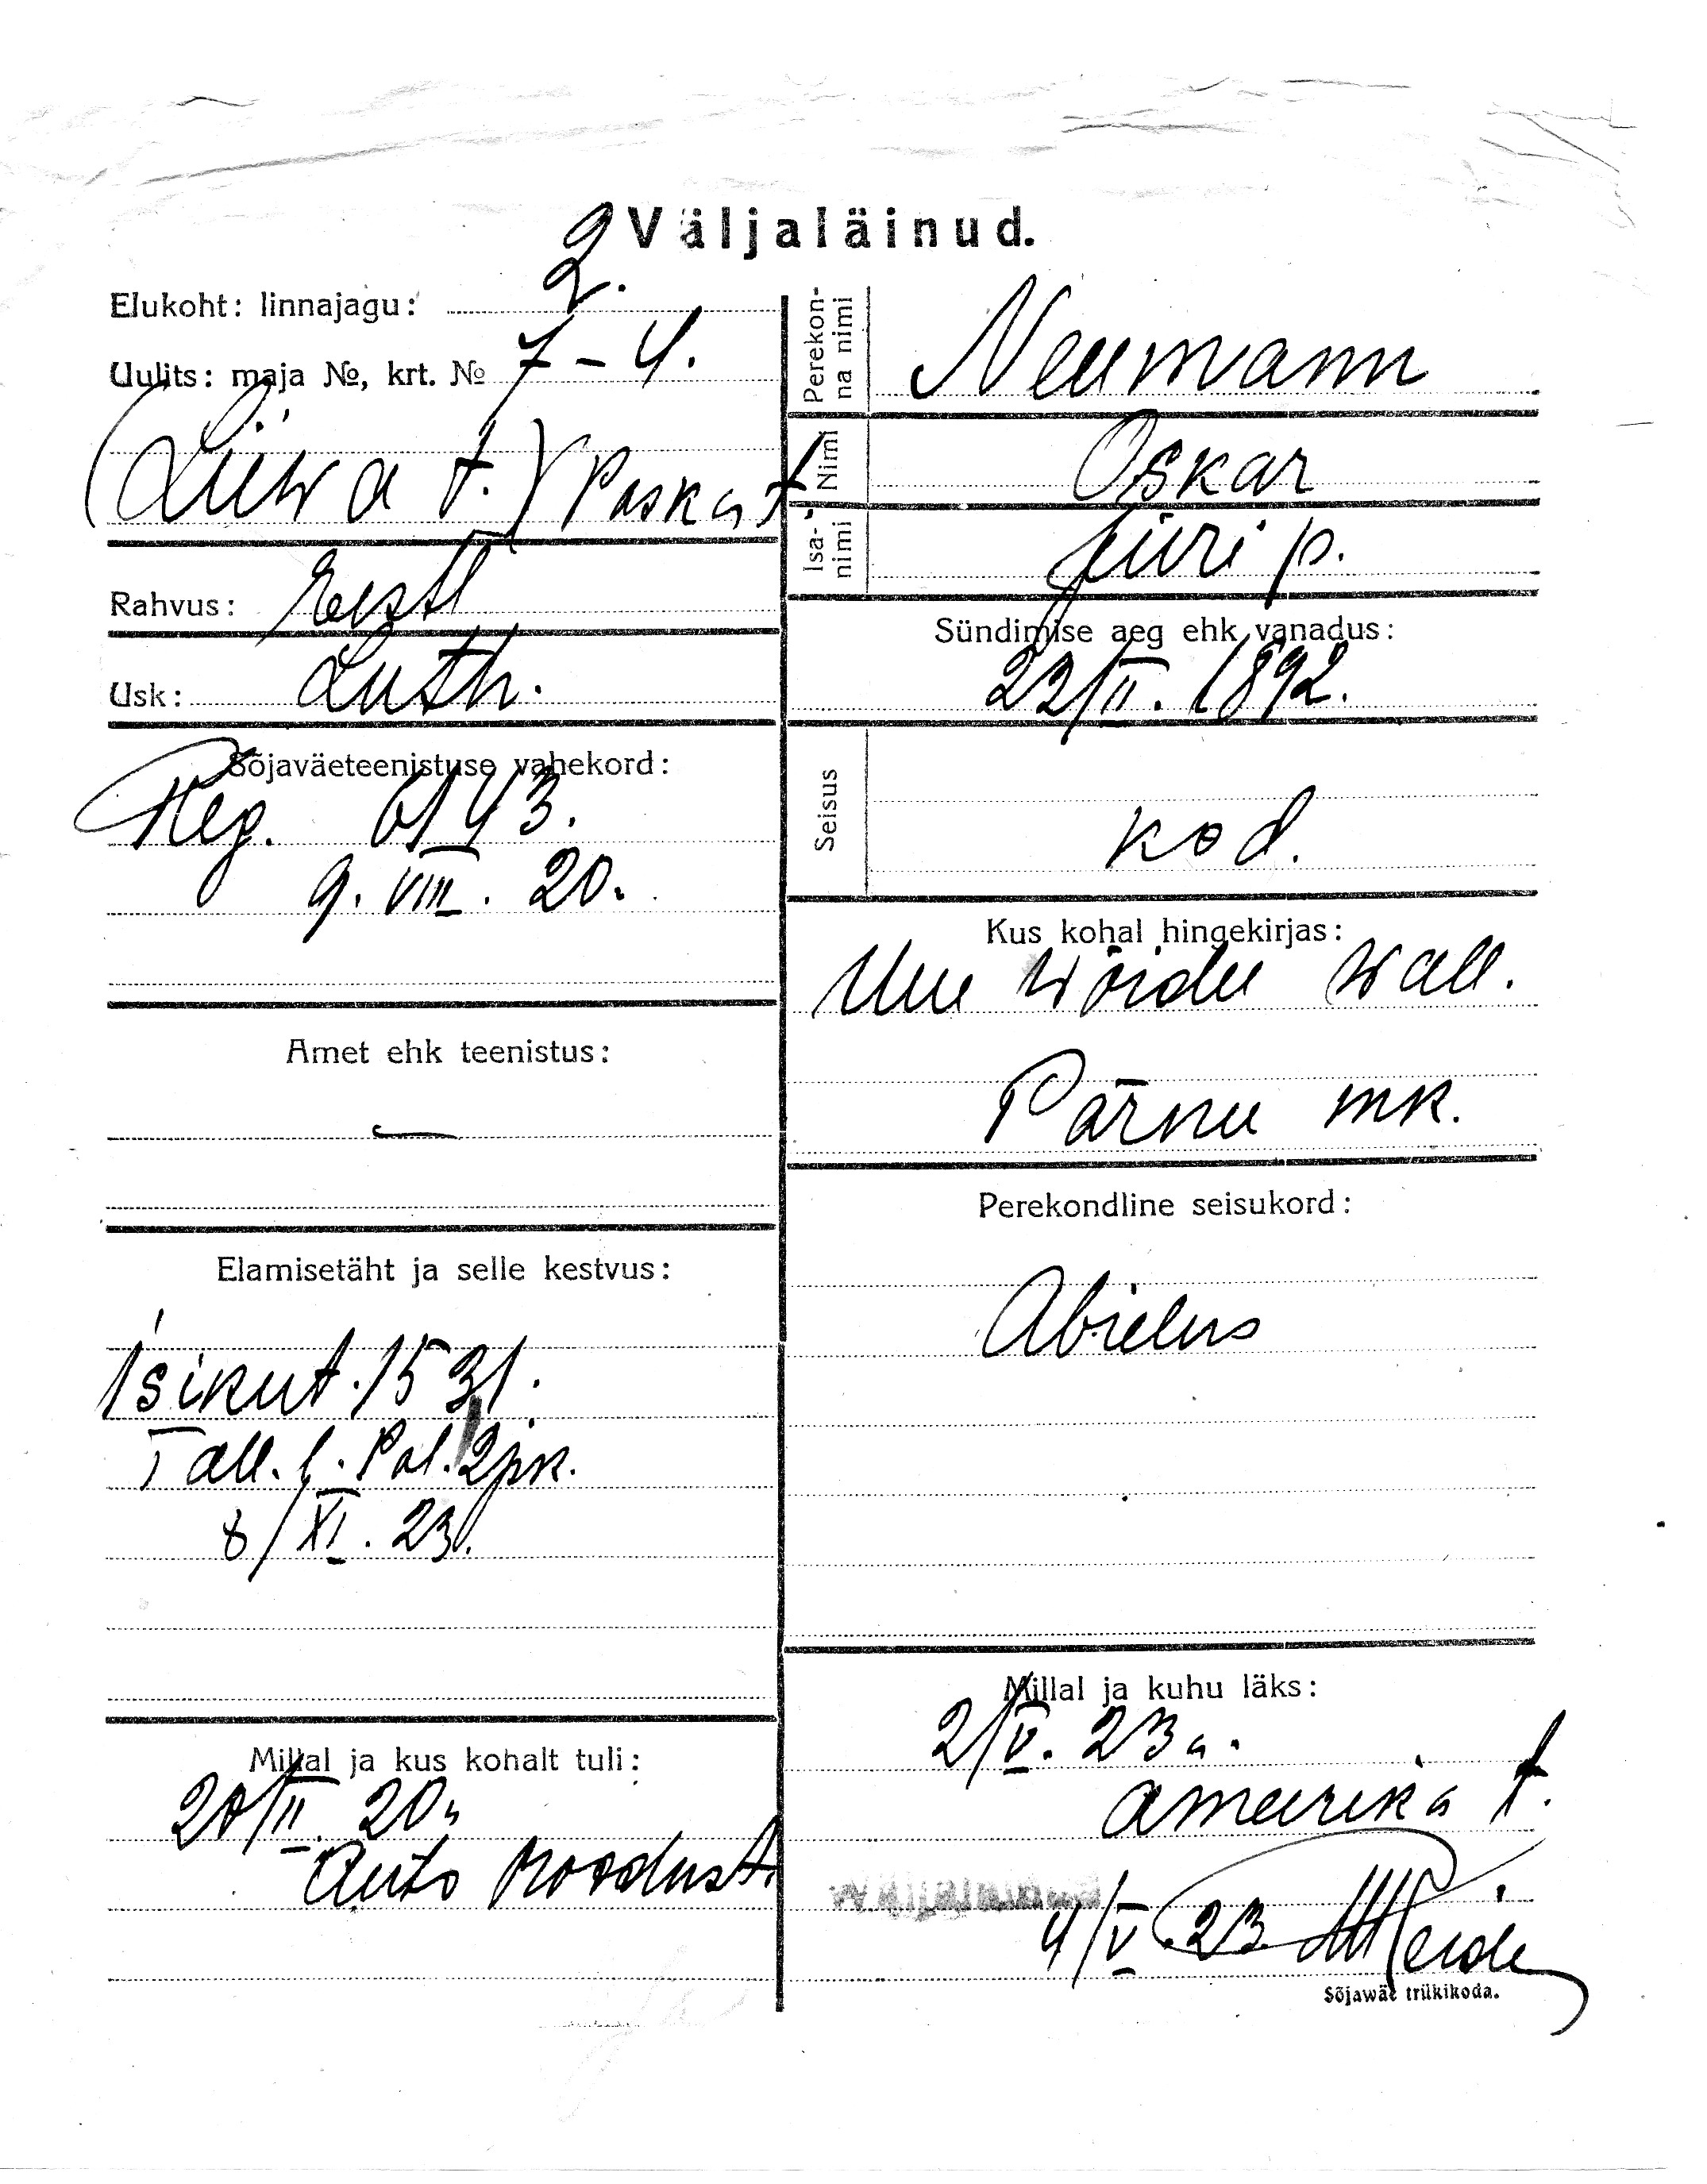 Väljaläinud.
Elukoht: linnajagu: 2.
Uulits: maja №, krt. № 7 – 4.
(Liiwa t.) Poska t.
Rahvus: Eestl
Usk: Luth.
Sõjaväeteenistuse vahekord:
Reg. 6143.
9. VIII. 20.
Amet ehk teenistus:
—
Elamisetäht ja selle kestvus:
Isikut. 1531.
Tall. l. Pol. 2 jsk.
8/XI. 23.
Millal ja kus kohalt tuli:
20/II. 20 a
Auto roodust.
Perekonna nimi
Neumann
Nimi
Oskar
Isa-nimi
Jüri p.
Sündimise aeg ehk vanadus:
22/II. 1892.
Seisus
kod.
Kus kohal hingekirjas:
Uue Wõidu wall.
Pärnu mk.
Perekondline seisukord:
Abielus
Millal ja kuhu läks:
2/V. 23 a.
Ameerika t.
Väljaläinud
4/V. 23.
Sõjawäe trükikoda.